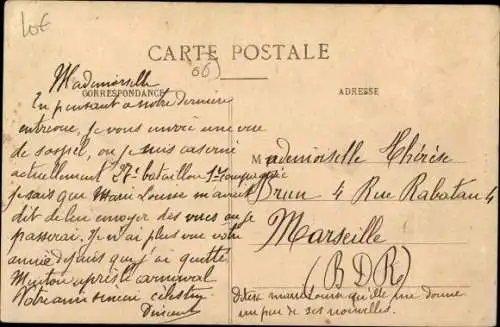 10€
CARTE POSTALE
(06)
CORRESPONDANCE
ADRESSE
Mademoiselle
En pensant a notre derniere
entrevue, je vous envoie une vue
de sospel, ou je suis caserné
actuellement 27e bataillon 1re compagnie
je sais que Marie Louise m'avait
dit de lui envoyer des vues ou je
passerai. Je n'ai plus vue votre
année depuis que j'ai quitté
Menton après le carnaval
Votre ami sincère célestin
Vincent
Mademoiselle Thérèse
Brun 4 Rue Rabatau 4
Marseille
(B D R)
Dites a marie Louise qu'elle me donne
un peu de ses nouvelles.